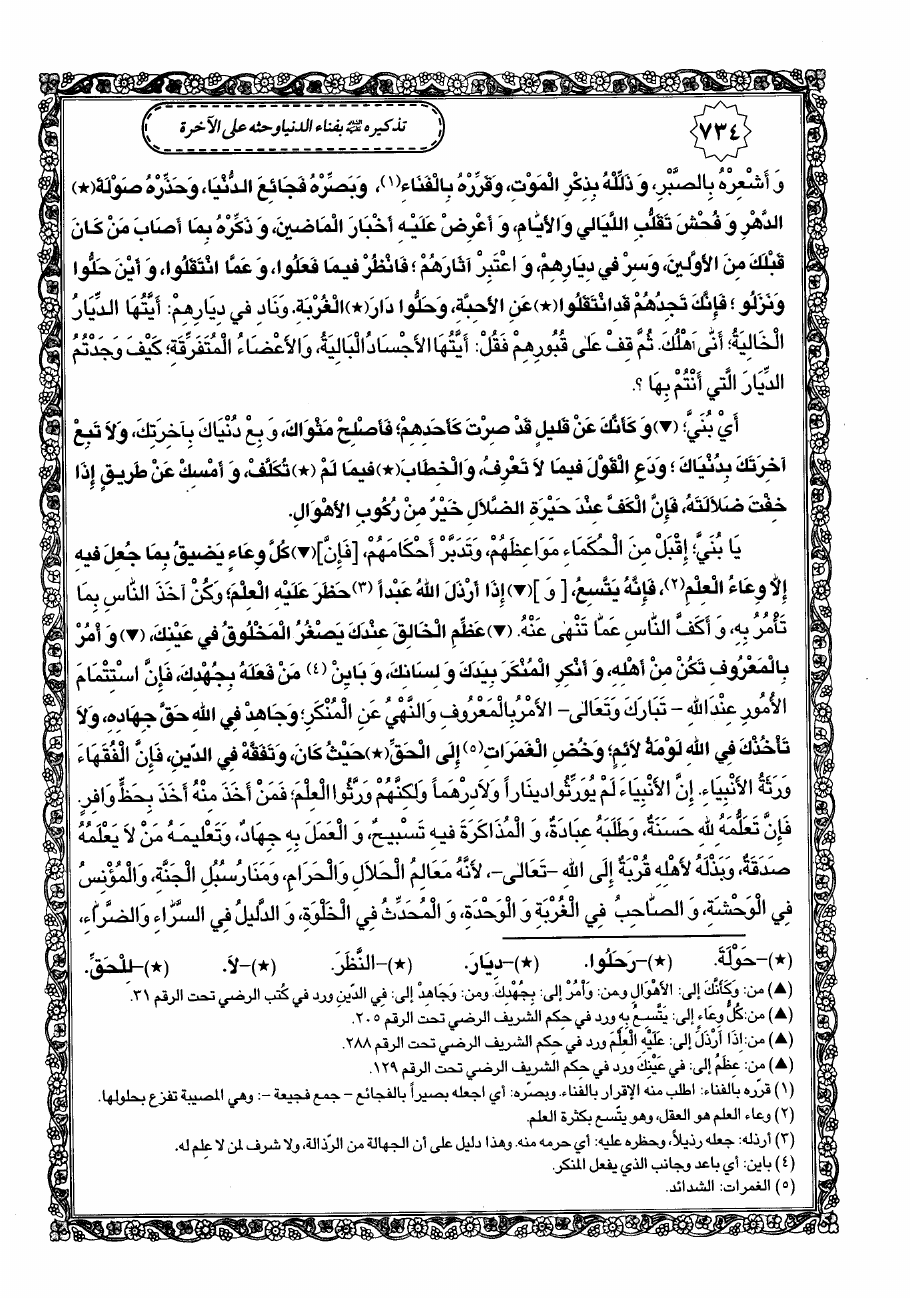 ٧٣٤
تذكيره عليه السلام بفناء الدنيا وحثه على الآخرة
وَ أَشْعِرْهُ بِالصَّبْرِ، وَ ذَلِّلْهُ بِذِكْرِ الْمَوْتِ، وَقَرِّرْهُ بِالْفَنَاءِ(١)، وَبَصِّرْهُ فَجَائِعَ الدُّنْيَا، وَحَذِّرْهُ صَوْلَةَ(★)
الدَّهْرِ وَ فُحْشَ تَقَلُّبِ اللَّيَالي وَالأَيَّامِ، وَ أَعْرِضْ عَلَيْهِ أَخْبَارَ الْمَاضينَ، وَ ذَكِّرْهُ بِمَا أَصَابَ مَنْ كَانَ
قَبْلَكَ مِنَ الأَوَّلينَ، وَسِرْ في دِيَارِهِمْ، وَ اعْتَبِرْ آثَارَهُمْ؛ فَانْظُرْ فيمَا فَعَلُوا، وَ عَمَّا انْتَقَلُوا، وَ أَيْنَ حَلُّوا
وَنَزَلُو؛ فَإِنَّكَ تَجِدُهُمْ قَدِ انْتَقَلُوا(★)عَنِ الأَحِبَّةِ، وَحَلُّوا دَارَ(★)الْغُرْبَةِ. وَنَادِ في دِيَارِهِمْ: أَيَّتُهَا الدِّيَارُ
الْخَالِيَةُ؛ أَنّى أَهْلُكَ. ثُمَّ قِفْ عَلى قُبُورِهِمْ فَقُلْ: أَيَّتُهَا الأَجْسَادُ الْبَالِيَةُ، وَالأَعْضَاءُ الْمُتَفَرِّقَةُ؛ كَيْفَ وَجَدْتُمُ
الدِّيَارَ الَّتي أَنْتُمْ بِهَا ؟.
أَيْ بُنَيَّ؛ (▼)وَ كَأَنَّكَ عَنْ قَليلٍ قَدْ صِرْتَ كَأَحَدِهِمْ؛ فَأَصْلِحْ مَثْوَاكَ، وَ بِعْ دُنْيَاكَ بِآخِرَتِكَ، وَلاَ تَبِعْ
آخِرَتَكَ بِدُنْيَاكَ؛ وَدَعِ الْقَوْلَ فيمَا لاَ تَعْرِفُ، وَالْخِطَابَ(★)فيمَا لَمْ (★)تُكَلَّفْ، وَ أَمْسِكْ عَنْ طَريقٍ إِذَا
خِفْتَ ضَلاَلَتَهُ، فَإِنَّ الْكَفَّ عِنْدَ حَيْرَةِ الضَّلاَلِ خَيْرٌ مِنْ رُكُوبِ الأَهْوَالِ.
يَا بُنَيَّ؛ إِقْبَلْ مِنَ الْحُكَمَاءِ مَوَاعِظَهُمْ، وَتَدَبَّرْ أَحْكَامَهُمْ، [فَإِنَّ](▼)كُلَّ وِعَاءٍ يَضيقُ بِمَا جُعِلَ فيهِ
إِلاَّ وِعَاءَ الْعِلْمِ(٢)، فَإِنَّهُ يَتَّسِعُ، [وَ](▼)إِذَا أَرْذَلَ اللهُ عَبْداً (٣)حَظَرَ عَلَيْهِ الْعِلْمَ؛ وَكُنْ آخَذَ النَّاسِ بِمَا
تَأْمُرُ بِهِ، وَ أَكَفَّ النَّاسِ عَمَّا تَنْهى عَنْهُ. (▼)عَظِّمِ الْخَالِقَ عِنْدَكَ يَصْغُرُ الْمَخْلُوقُ في عَيْنِكَ، (▼)وَ أْمُرْ
بِالْمَعْرُوفِ تَكُنْ مِنْ أَهْلِهِ، وَ أَنْكِرِ الْمُنْكَرَ بِيَدِكَ وَ لِسَانِكَ، وَ بَايِنْ (٤) مَنْ فَعَلَهُ بِجُهْدِكَ، فَإِنَّ اسْتِتْمَامَ
الأُمُورِ عِنْدَ اللهِ – تَبَارَكَ وَتَعَالى– الأَمْرُ بِالْمَعْرُوفِ وَالنَّهْيُ عَنِ الْمُنْكَرِ؛ وَجَاهِدْ فِي اللهِ حَقَّ جِهَادِهِ، وَلاَ
تَأْخُذْكَ فِي اللهِ لَوْمَةُ لاَئِمٍ؛ وَخُضِ الْغَمَرَاتِ(٥) إِلَى الْحَقِّ(★)حَيْثُ كَانَ، وَتَفَقَّهْ فِي الدّينِ، فَإِنَّ الْفُقَهَاءَ
وَرَثَةُ الأَنْبِيَاءِ. إِنَّ الأَنْبِيَاءَ لَمْ يُوَرِّثُوا دينَاراً وَلاَدِرْهَماً وَلكِنَّهُمْ وَرَّثُوا الْعِلْمَ؛ فَمَنْ أَخَذَ مِنْهُ أَخَذَ بِحَظٍّ وَافِرٍ.
فَإِنَّ تَعَلُّمَهُ لِلّهِ حَسَنَةٌ، وَطَلَبَهُ عِبَادَةٌ، وَ الْمُذَاكَرَةَ فيهِ تَسْبيحٌ، وَ الْعَمَلَ بِهِ جِهَادٌ، وَتَعْليمَهُ مَنْ لاَ يَعْلَمُهُ
صَدَقَةٌ، وَبَذْلَهُ لأَهْلِهِ قُرْبَةٌ إِلَى اللهِ –تَعَالى–، لأَنَّهُ مَعَالِمُ الْحَلاَلِ وَالْحَرَامِ، وَمَنَارُ سُبُلِ الْجَنَّةِ، وَالْمُؤْنِسُ
فِي الْوَحْشَةِ، وَ الصَّاحِبُ فِي الْغُرْبَةِ وَ الْوَحْدَةِ، وَ الْمُحَدِّثُ فِي الْخَلْوَةِ، وَ الدَّليلُ فِي السَّرَّاءِ وَالضَّرَّاءِ،
(★)–حَوْلَةَ. (★)–رَحَلُوا. (★)–دِيَارَ. (★)–النَّظَرَ. (★)–لاَ. (★)–لِلْحَقِّ.
(▲) من: وَكَأَنَّكَ إلى: الأَهْوَالِ ومن: وَأْمُرْ إلى: بِجُهْدِكَ ومن: وَجَاهِدْ إلى: فِي الدّينِ ورد في كُتب الرضي تحت الرقم ٣١.
(▲) من:كُلُّ وِعَاءٍ إلى: يَتَّسِعُ بِهِ ورد في حِكم الشريف الرضي تحت الرقم ٢٠٥.
(▲) من:إِذَا أَرْذَلَ إلى: عَلَيْهِ الْعِلْمَ ورد في حِكم الشريف الرضي تحت الرقم ٢٨٨.
(▲) من: عِظَمُ إلى: في عَيْنِكَ ورد في حِكم الشريف الرضي تحت الرقم ١٢٩.
(١) قرّره بالفناء: اطلب منه الإقرار بالفناء. وبصّره: أي اجعله بصيراً بالفجائع – جمع فجيعة –: وهي المصيبة تفزع بحلولها.
(٢) وعاء العلم هو العقل، وهو يتّسع بكثرة العلم.
(٣) أرذله: جعله رذيلاً، وحظره عليه: أي حرمه منه. وهذا دليل على أن الجهالة من الرّذالة، ولا شرف لمن لا علم له.
(٤) باين: أي باعد وجانب الذي يفعل المنكر.
(٥) الغمرات: الشدائد.